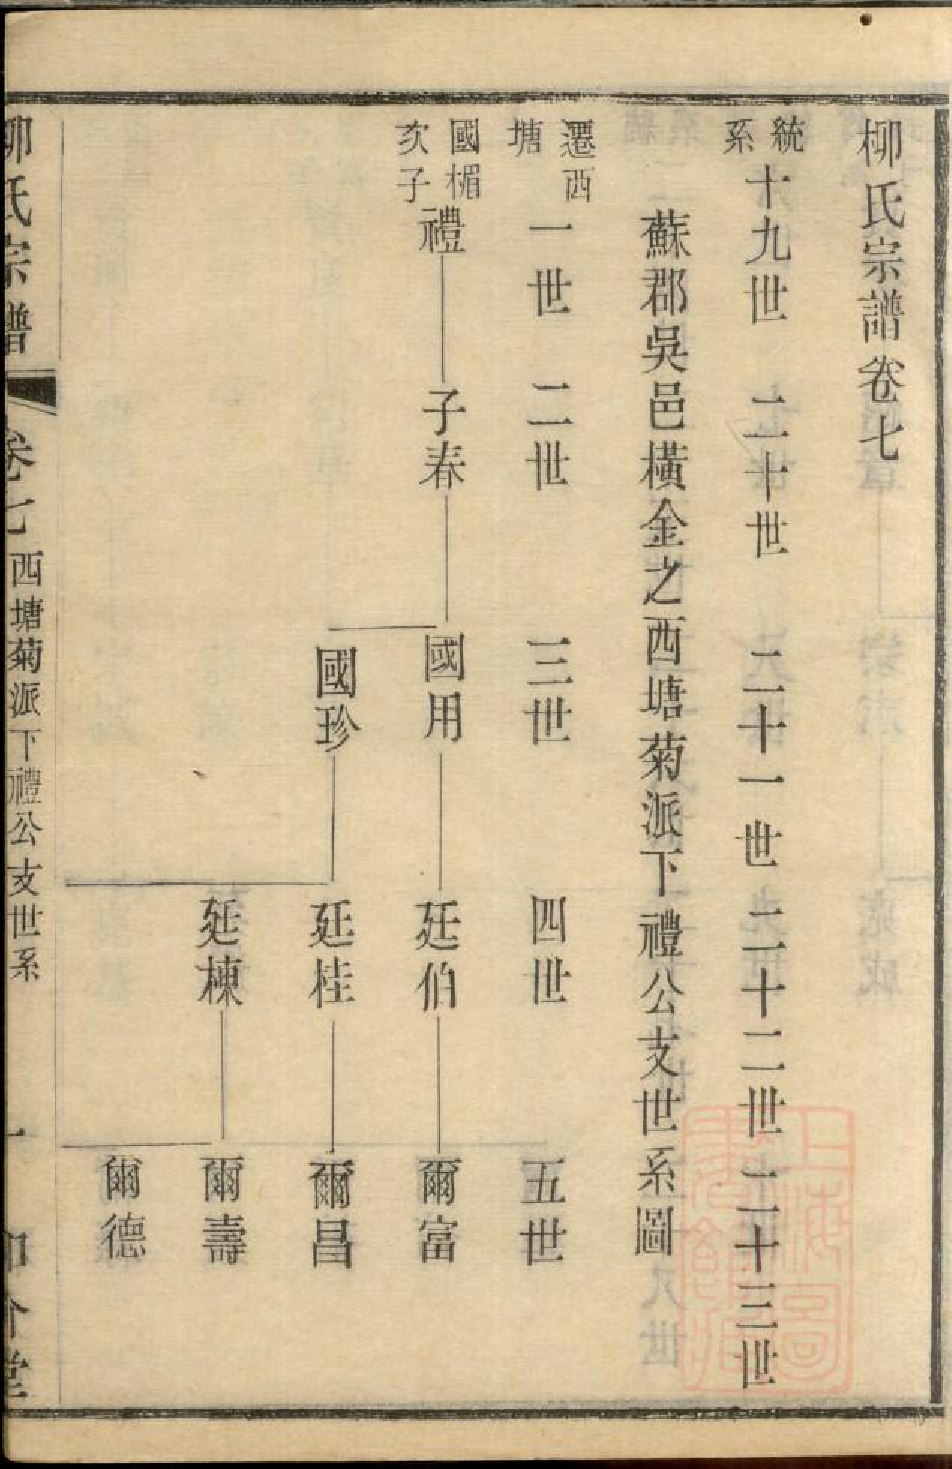 柳氏宗譜卷七
統系十九世 二十世 二十一世 二十二世 二十三世
蘇郡吳邑橫金之西塘菊派下禮公支世系圖
遷西塘一世 二世 三世 四世 五世
國楣次子禮 子春 國用 廷伯 爾富
國珍 廷桂 爾昌
廷棟 爾壽
爾德
柳氏宗譜 卷七 西塘菊派下禮公支世系 一